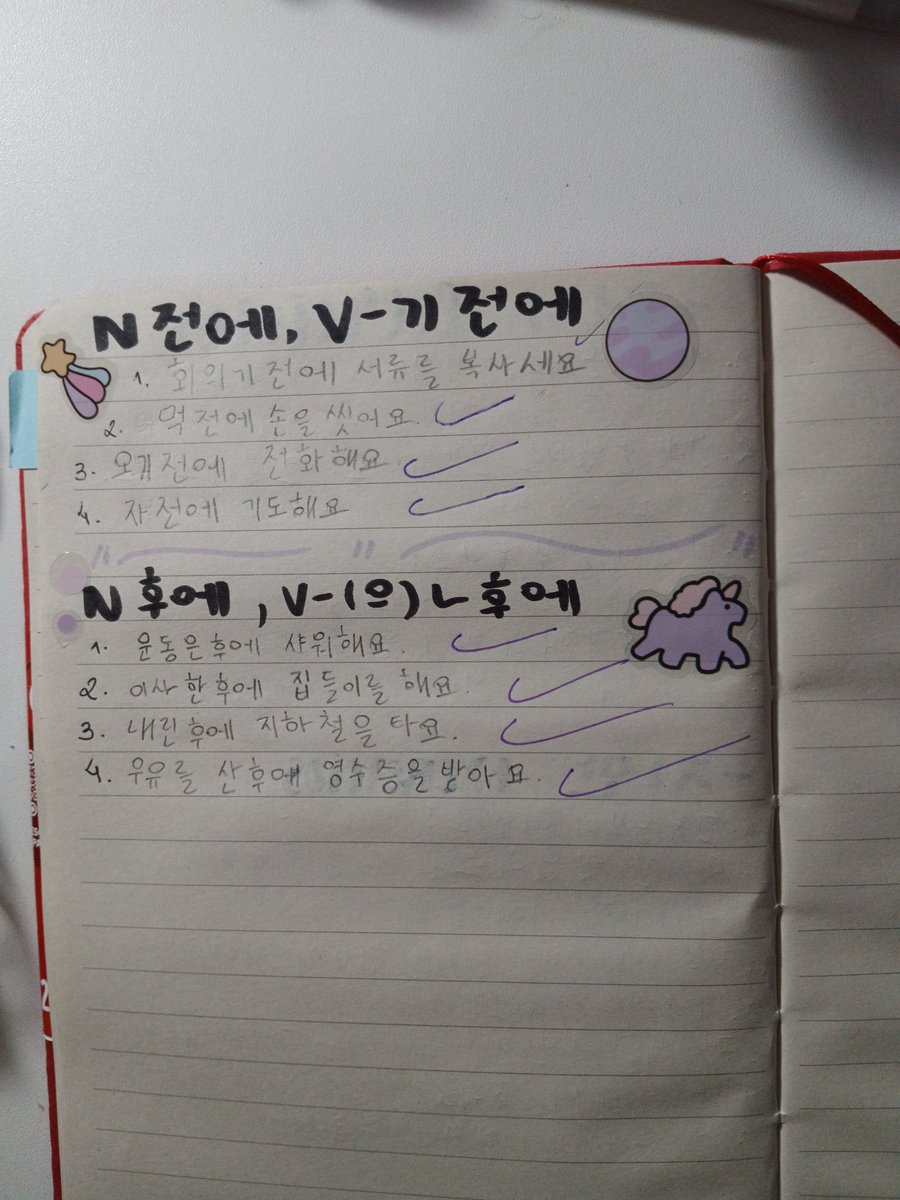 N 전에, V-기 전에
1. 회의기 전에 서류를 복사세요
2. 먹 전에 손을 씻어요.
3. 오기 전에 전화해요
4. 자 전에 기도해요
N 후에, V-(으)ㄴ 후에
1. 운동은후에 샤워해요.
2. 이사한후에 집들이를 해요.
3. 내린후에 지하철을 타요.
4. 우유를 산후에 영수증을 받아요.